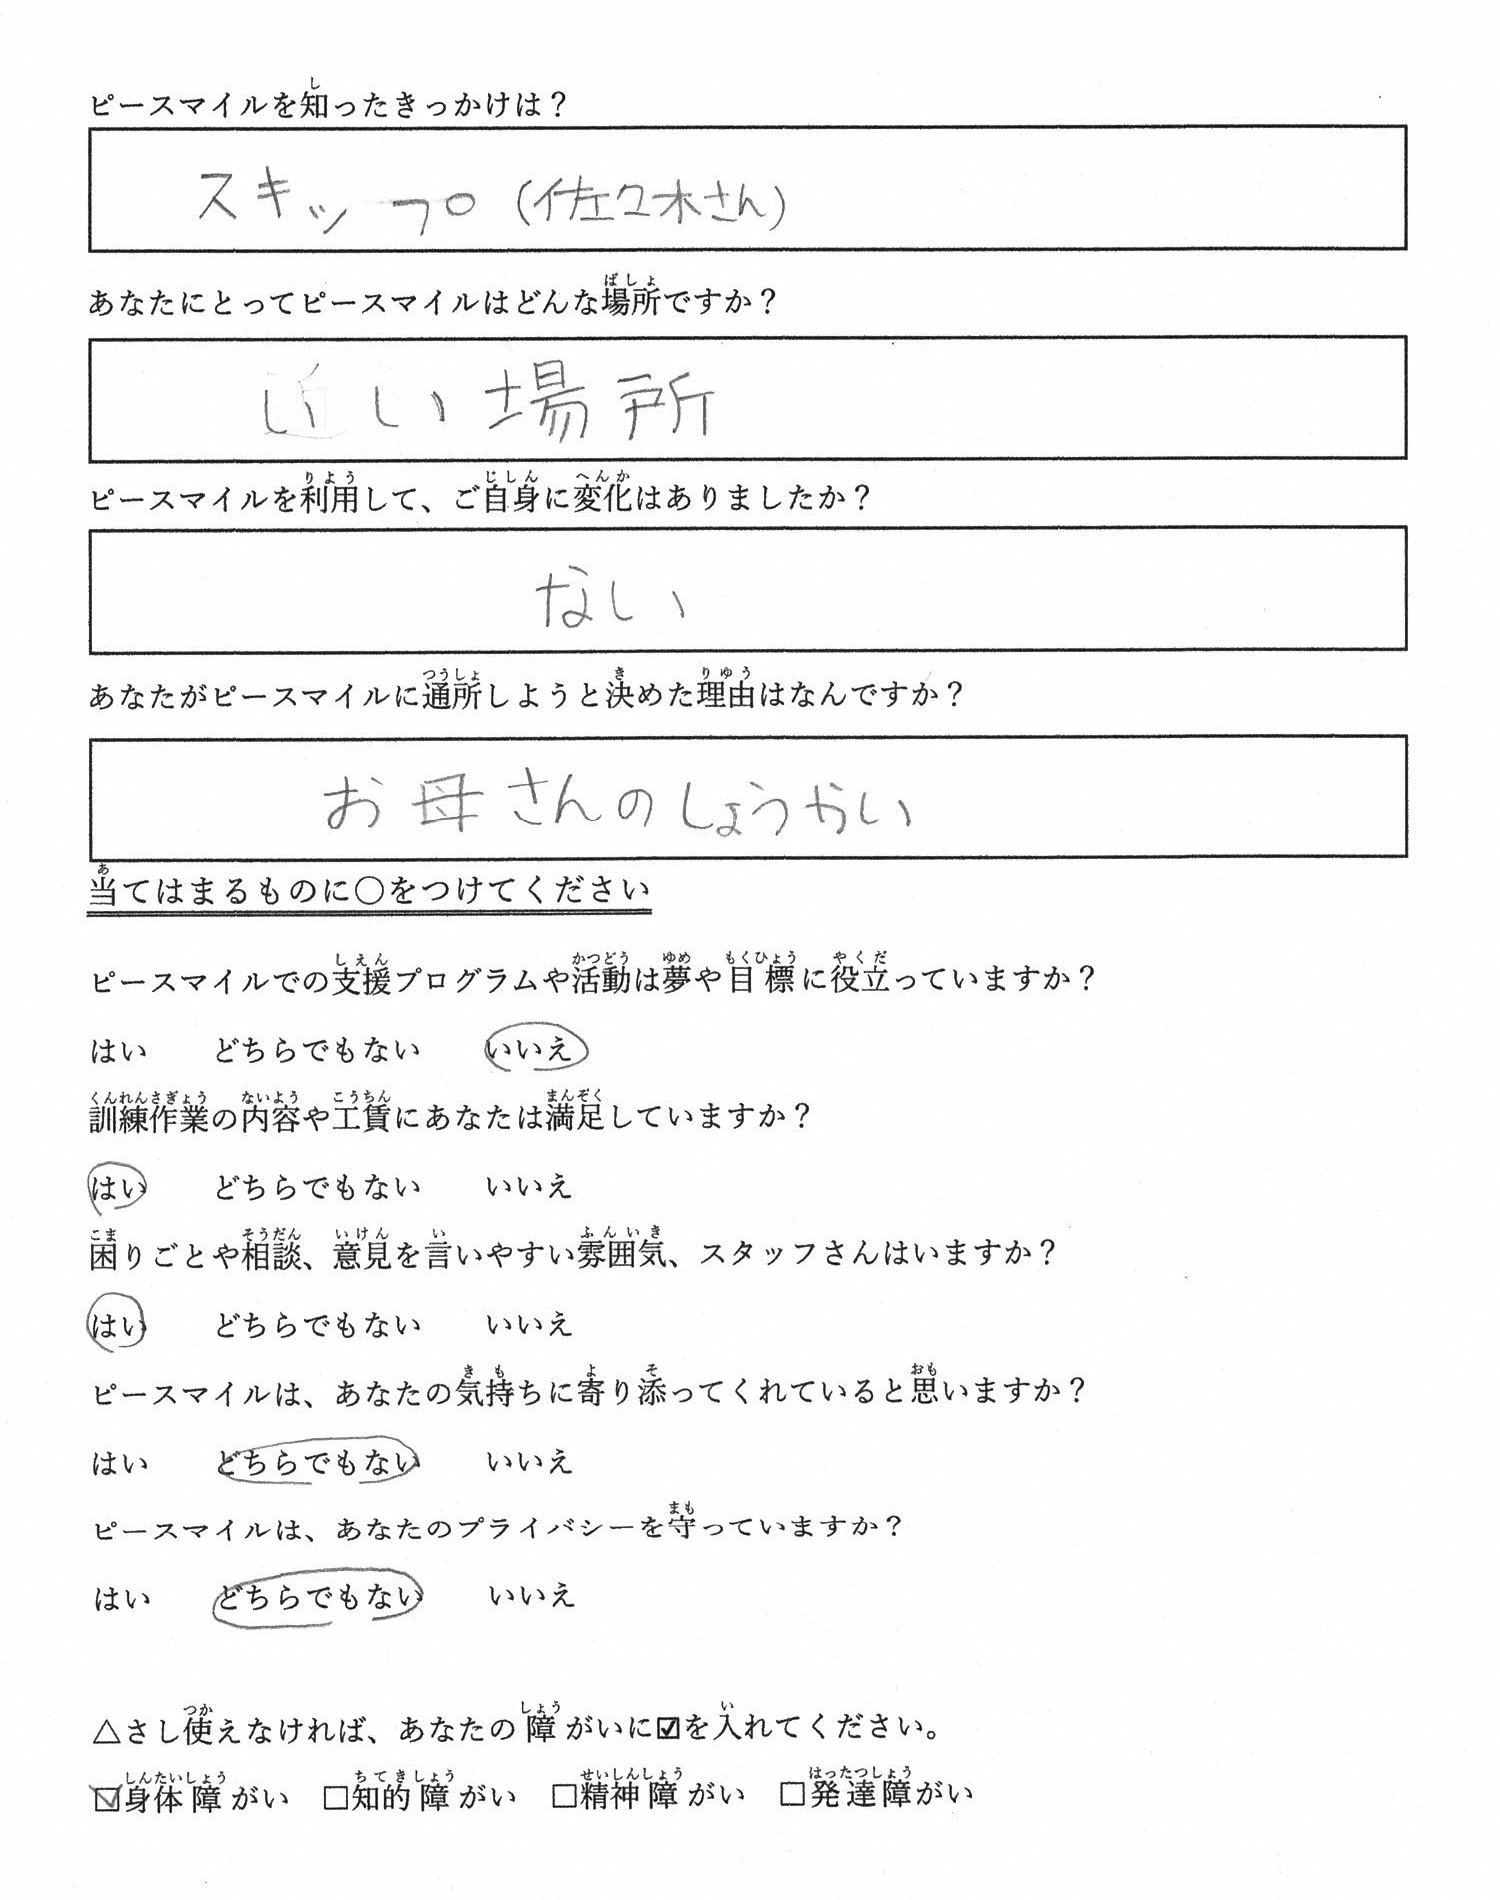 ピースマイルを知ったきっかけは？
スキップ（佐々木さん）
あなたにとってピースマイルはどんな場所ですか？
しい場所
ピースマイルを利用して、ご自身に変化はありましたか？
ない
あなたがピースマイルに通所しようと決めた理由はなんですか？
お母さんのしょうかい
当てはまるものに○をつけてください
ピースマイルでの支援プログラムや活動は夢や目標に役立っていますか？
はい　どちらでもない　いいえ
訓練作業の内容や工賃にあなたは満足していますか？
はい　どちらでもない　いいえ
困りごとや相談、意見を言いやすい雰囲気、スタッフさんはいますか？
はい　どちらでもない　いいえ
ピースマイルは、あなたの気持ちに寄り添ってくれていると思いますか？
はい　どちらでもない　いいえ
ピースマイルは、あなたのプライバシーを守っていますか？
はい　どちらでもない　いいえ
△さし使えなければ、あなたの障がいに☑を入れてください。
☑身体障がい　□知的障がい　□精神障がい　□発達障がい